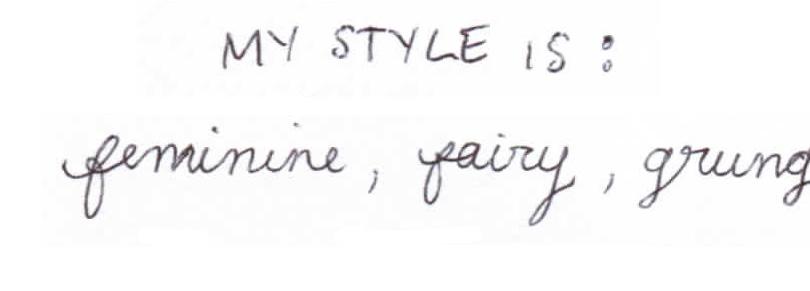 MY STYLE IS:
feminine, fairy, grung